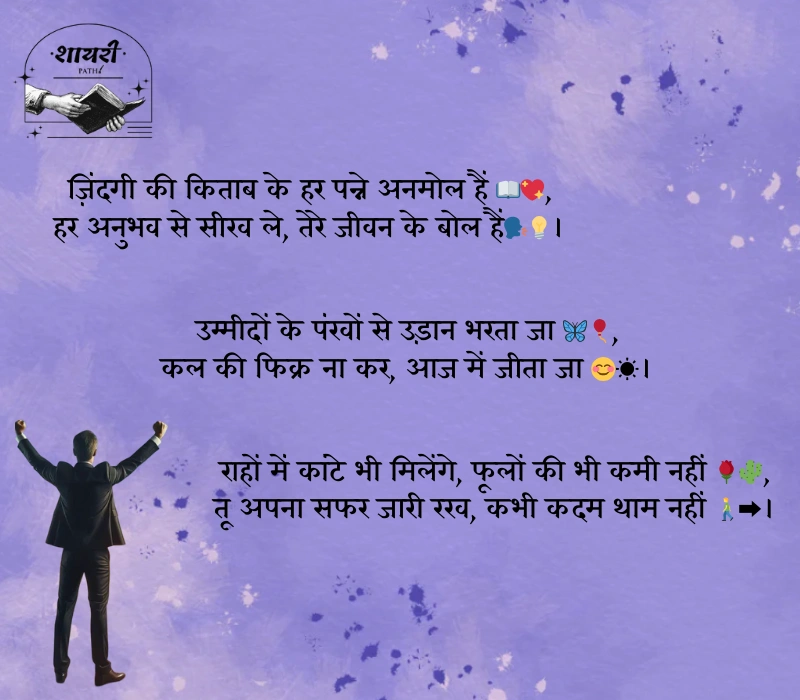 शायरी
PATH
ज़िंदगी की किताब के हर पन्ने अनमोल हैं 📖💖,
हर अनुभव से सीख ले, तेरे जीवन के बोल हैं🗣️💡।
उम्मीदों के पंखों से उड़ान भरता जा 🦋🎈,
कल की फिक्र ना कर, आज में जीता जा 😊☀।
राहों में कांटे भी मिलेंगे, फूलों की भी कमी नहीं 🌹🍀,
तू अपना सफर जारी रख, कभी कदम थाम नहीं 🚶➡।